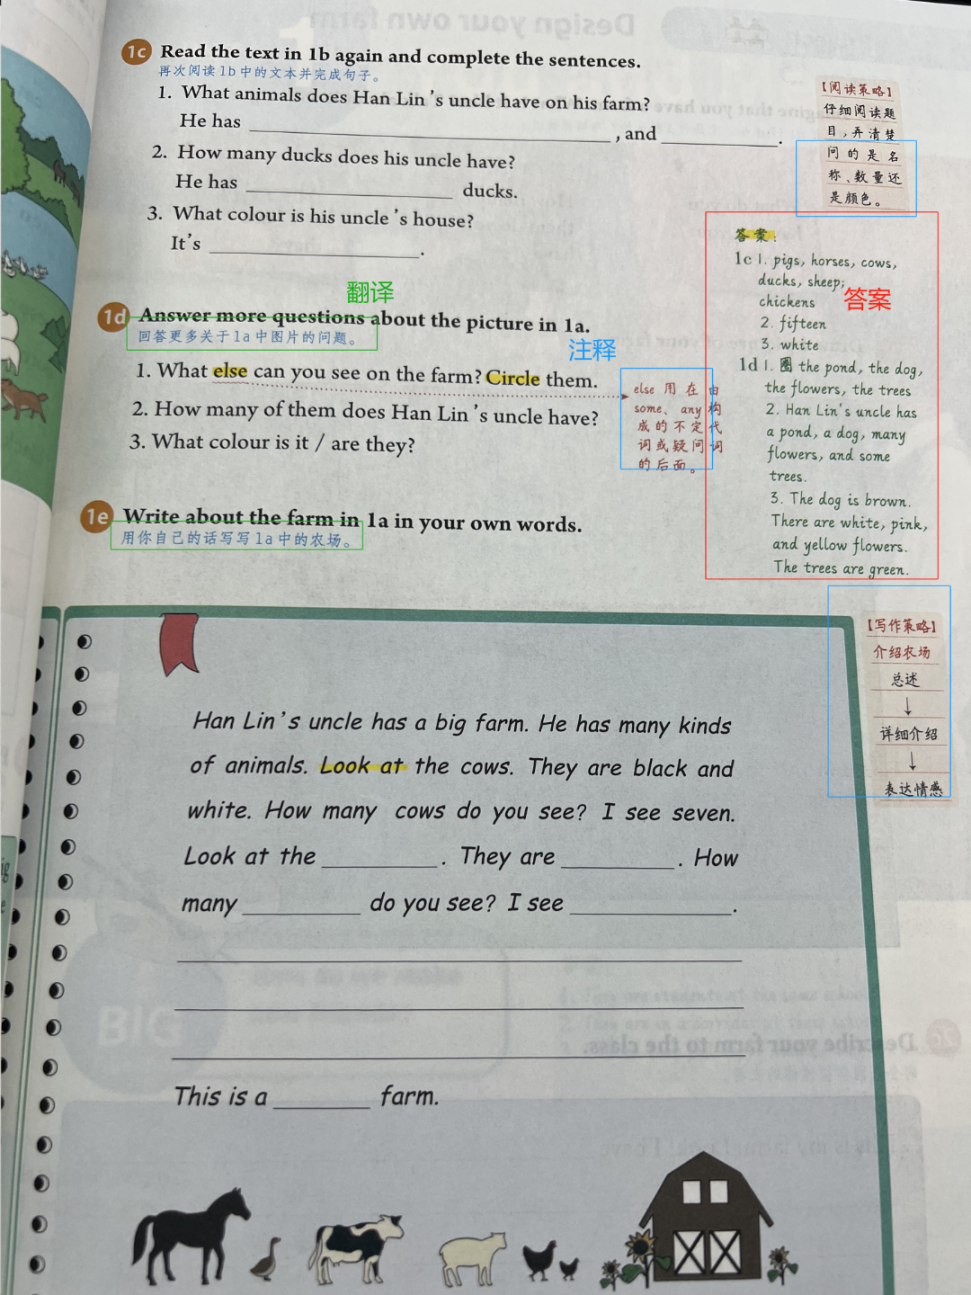 1c Read the text in 1b again and complete the sentences.
再次阅读1b中的文本并完成句子。
1. What animals does Han Lin's uncle have on his farm?
He has , and .
2. How many ducks does his uncle have?
He has ducks.
3. What colour is his uncle's house?
It's .
【阅读策略】
仔细阅读题
目,弄清楚
问的是名
称、数量还
是颜色。
翻译
1d Answer more questions about the picture in 1a.
回答更多关于1a中图片的问题。
注释
1. What else can you see on the farm? Circle them.
2. How many of them does Han Lin's uncle have?
3. What colour is it / are they?
else 用在由
some、any构
成的不定代
词或疑问词
的后面。
答案:
答案
1c 1. pigs, horses, cows,
ducks, sheep,
chickens
2. fifteen
3. white
1d 1. 圈 the pond, the dog,
the flowers, the trees
2. Han Lin's uncle has
a pond, a dog, many
flowers, and some
trees.
3. The dog is brown.
There are white, pink,
and yellow flowers.
The trees are green.
1e Write about the farm in 1a in your own words.
用你自己的话写写1a中的农场。
【写作策略】
介绍农场
总述
↓
详细介绍
↓
表达情感
Han Lin's uncle has a big farm. He has many kinds
of animals. Look at the cows. They are black and
white. How many cows do you see? I see seven.
Look at the . They are . How
many do you see? I see .
This is a farm.